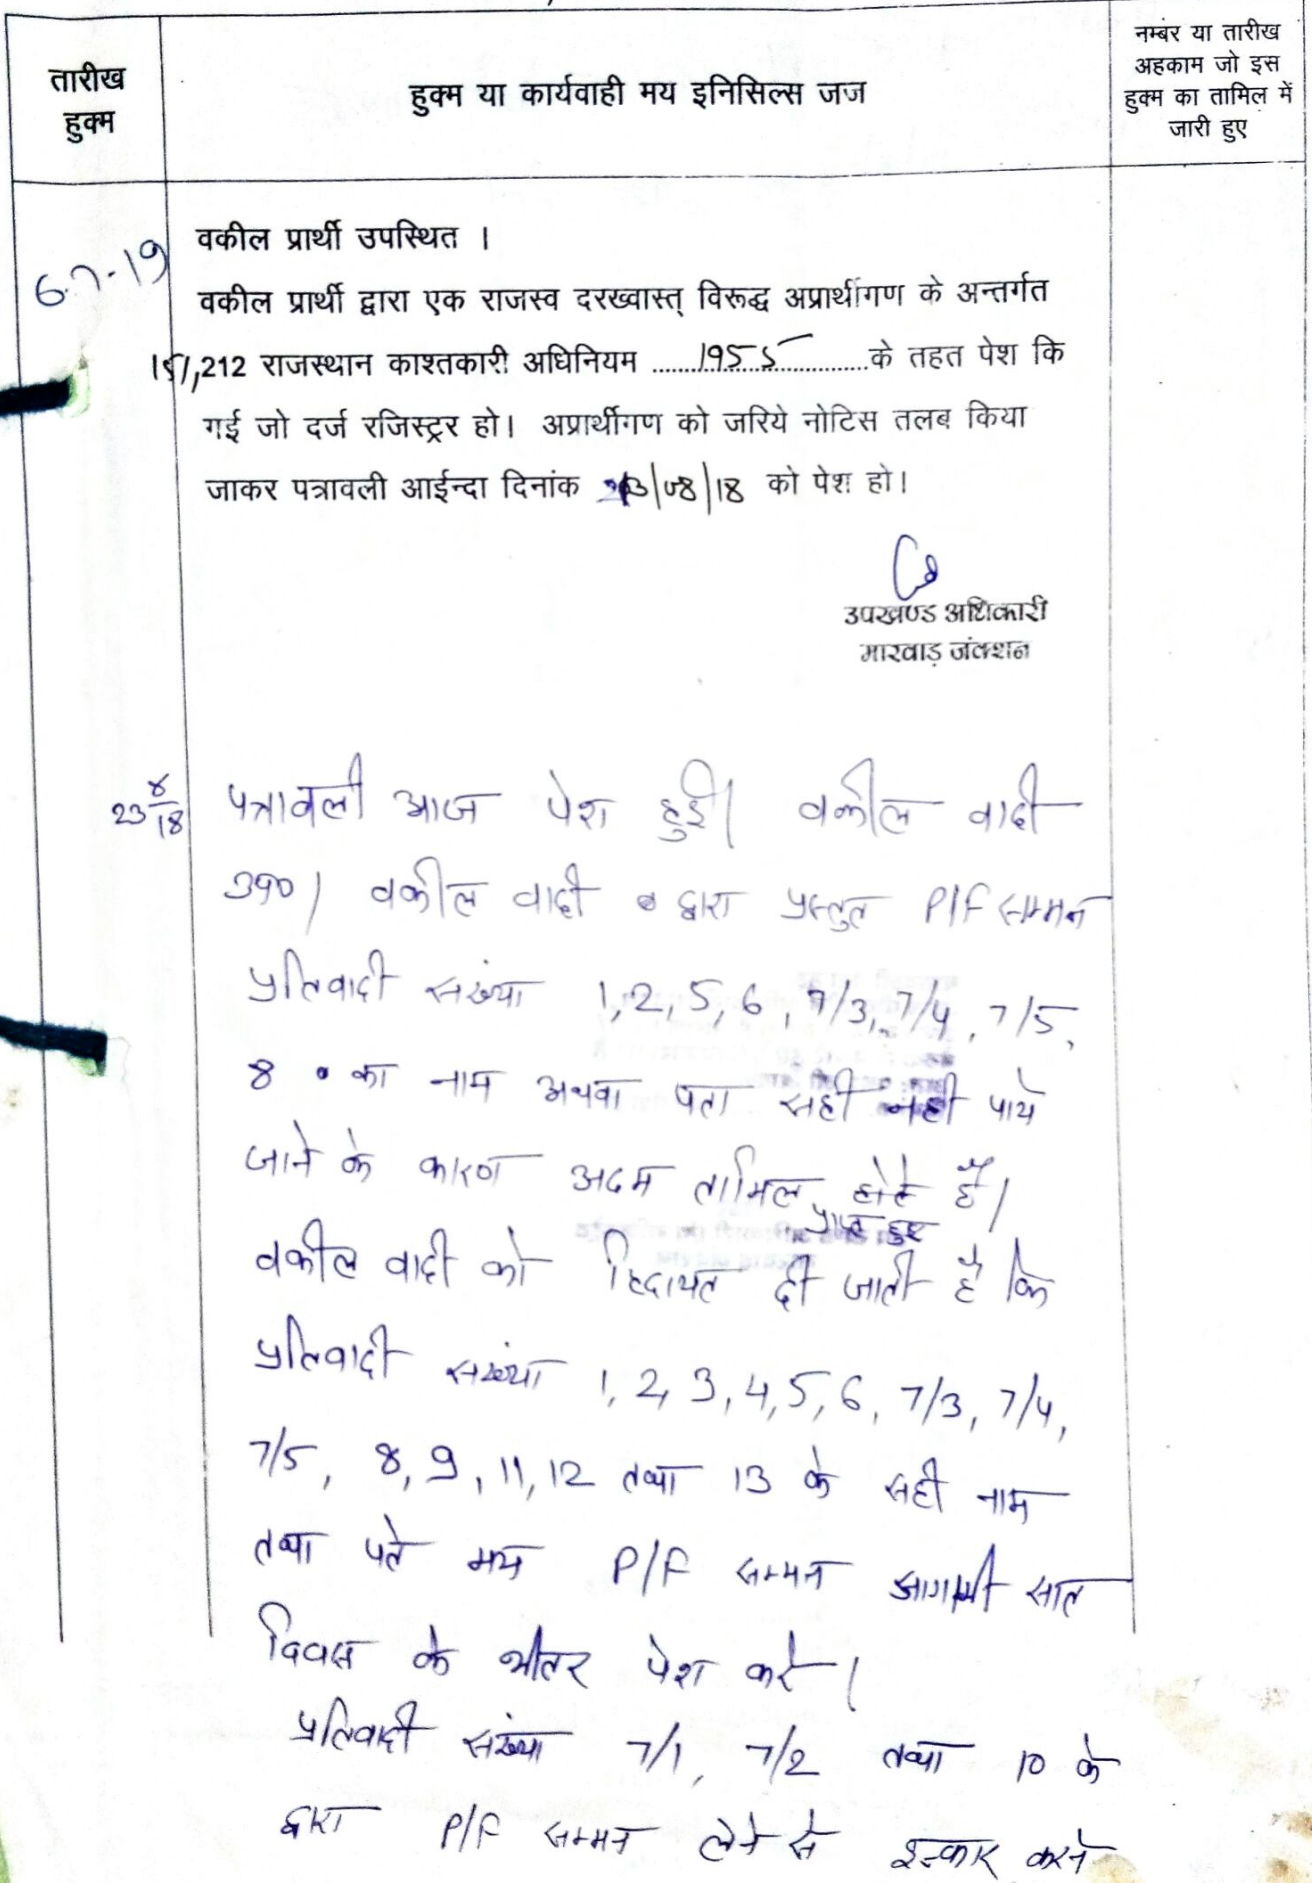 तारीख
हुक्म
हुक्म या कार्यवाही मय इनिसिल्स जज
नम्बर या तारीख
अहकाम जो इस
हुक्म का तामिल में
जारी हुए
6.7-19
वकील प्रार्थी उपस्थित ।
वकील प्रार्थी द्वारा एक राजस्व दरख्वास्त् विरूद्ध अप्रार्थीगण के अन्तर्गत
212 राजस्थान काश्तकारी अधिनियम ........1955........के तहत पेश कि
गई जो दर्ज रजिस्ट्रर हो। अप्रार्थीगण को जरिये नोटिस तलब किया
जाकर पत्रावली आईन्दा दिनांक 23/08/18 को पेश हो।
उपखण्ड अधिकारी
मारवाड़ जंक्शन
23 8/18
पत्रावली आज पेश हुई। वकील वादी
उप०। वकील वादी द्वारा प्रस्तुत P/F सम्मन
प्रतिवादी संख्या 1, 2, 5, 6, 7/3, 7/4, 7/5,
8 का नाम अथवा पता सही नही पाये
जाने के कारण अदम तामिल होते है।
प्राप्त हुए
वकील वादी को हिदायत दी जाती है कि
प्रतिवादी संख्या 1, 2, 3, 4, 5, 6, 7/3, 7/4,
7/5, 8, 9, 11, 12 तथा 13 के सही नाम
तथा पते मय P/F सम्मन आगामी सात
दिवस के भीतर पेश करे।
प्रतिवादी संख्या 7/1, 7/2 तथा 10 के
द्वारा P/F सम्मन लेने से इन्कार करने